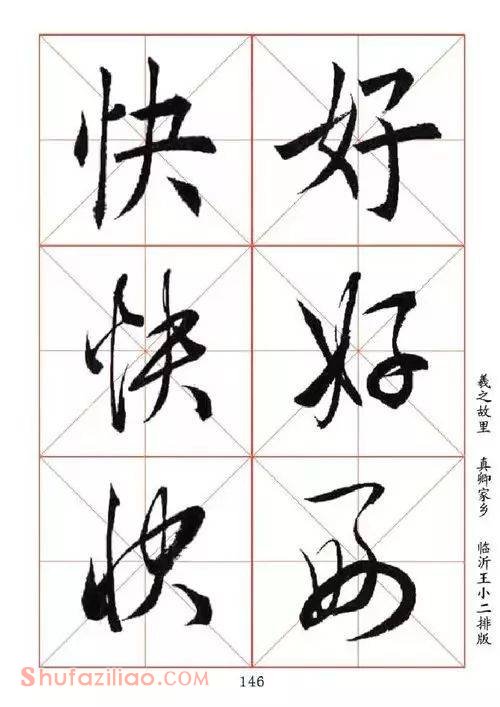 好好好
快快快
羲之故里 真卿家乡 临沂王小二排版
Shufaziliao.COM
146